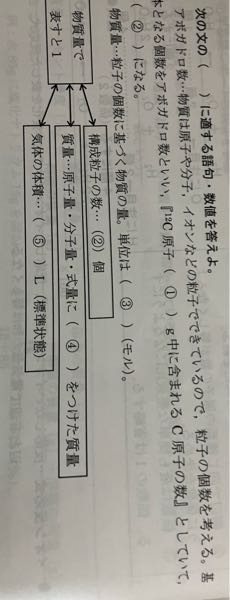 次の文の（　　）に適する語句・数値を答えよ。
アボガドロ数…物質は原子や分子，イオンなどの粒子でできているので，粒子の個数を考える。基
本となる個数をアボガドロ数といい，『¹²C 原子（　①　）g 中に含まれる C 原子の数』としていて，
（　②　）になる。
物質量…粒子の個数に基づく物質の量。単位は（　③　）（モル）。
物質量で
表すと1
構成粒子の数…（②）個
質量…原子量・分子量・式量に（　④　）をつけた質量
気体の体積…（　⑤　）L（標準状態）